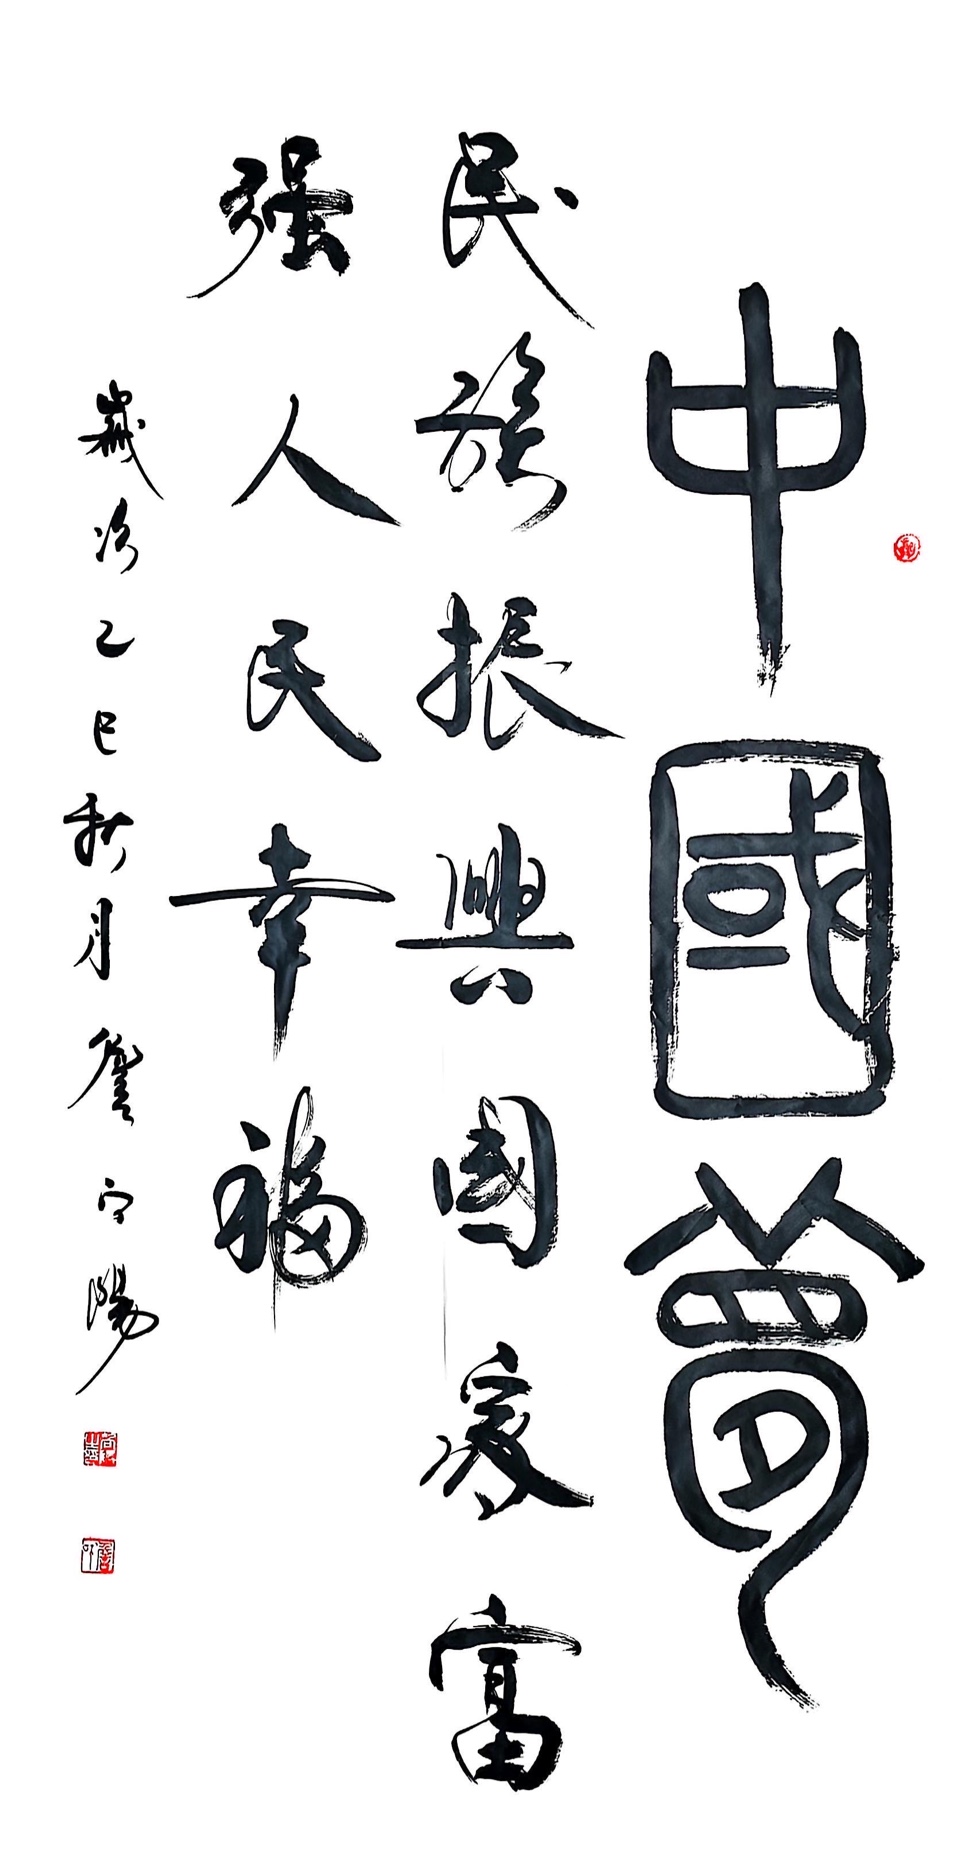 中國夢
民族振興國家富
强人民幸福
歲次乙巳秋月詹守陽